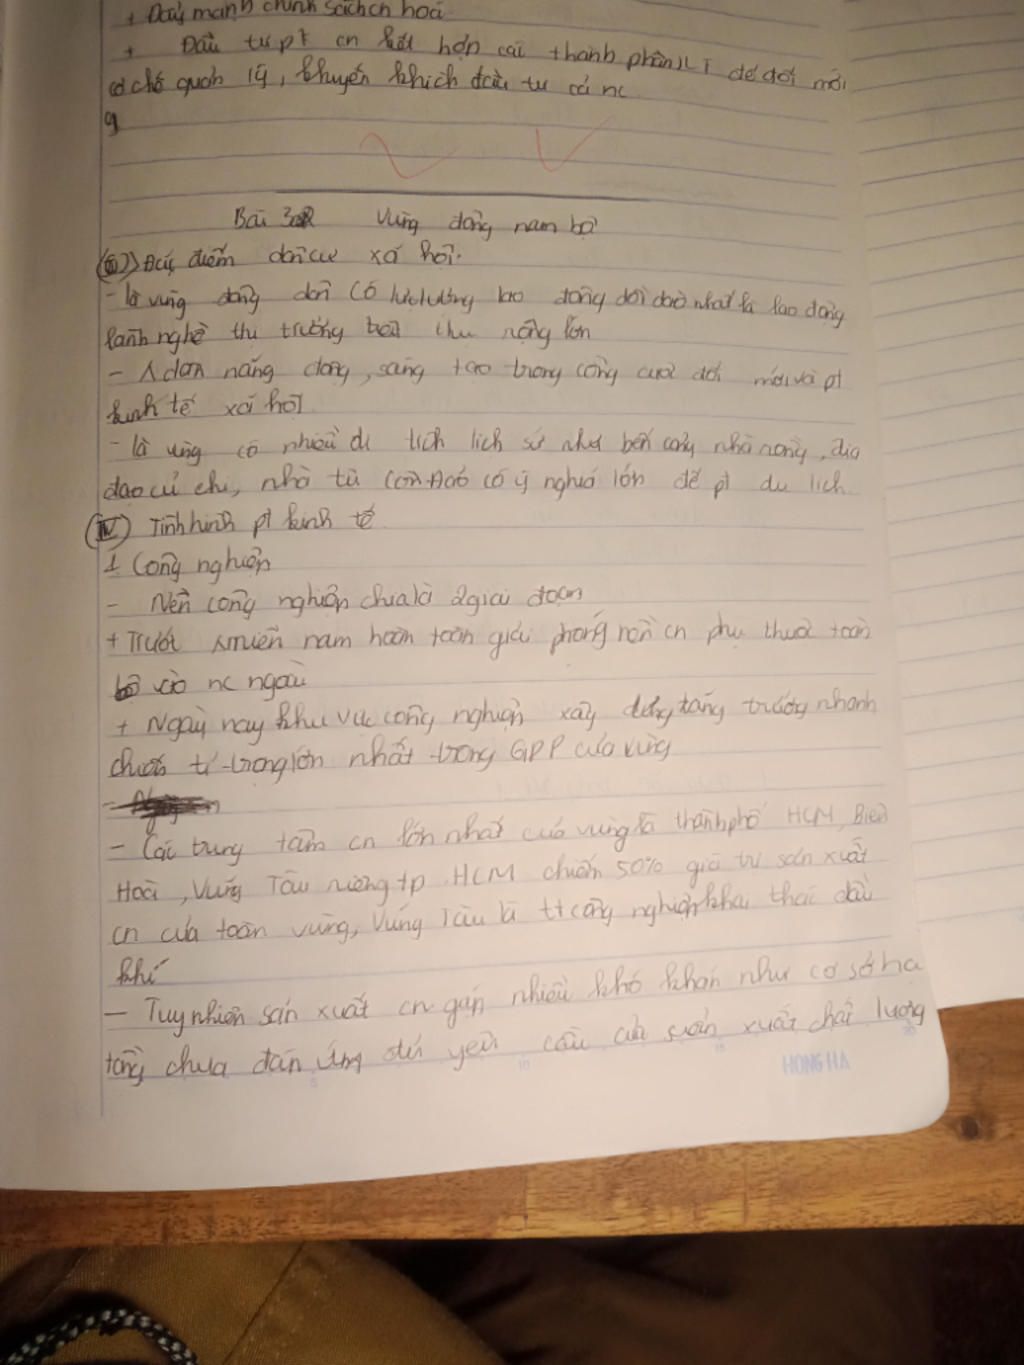 + Đẩy mạnh chính sách cn hoá
+ Đầu tư pt cn kết hợp cải thành phần KT để đổi mới
cơ chế quản lý, khuyến khích đầu tư cả nc
g
Bài 32 Vùng đông nam bộ
Đặc điểm dân cư xã hội.
- là vùng đông dân có lực lượng lao động dồi dào nhất là lao động
lành nghề thị trường tiêu thụ rộng lớn
- dân năng động, sáng tạo trong công cuộc đổi mới và pt
kinh tế xã hội
- là vùng có nhiều di tích lịch sử như bến cảng nhà rồng, địa
đạo củ chi, nhà tù Côn Đảo có ý nghĩa lớn để pt du lịch
IV) Tình hình pt kinh tế
1 Công nghiệp
- Nền công nghiệp chia là 2 giai đoạn
+ Trước miền nam hoàn toàn giải phóng nền cn phụ thuộc toàn
bộ vào nc ngoài
+ Ngày nay khu vực công nghiệp xây dựng tăng trưởng nhanh
chiếm tỉ trọng lớn nhất trong GPP của vùng
- Các trung tâm cn lớn nhất của vùng là thành phố HCM, Biên
Hoà, Vũng Tàu riêng tp HCM chiếm 50% giá trị sản xuất
cn của toàn vùng, Vũng Tàu là tt công nghiệp khai thác dầu
khí
- Tuy nhiên sản xuất cn gặp nhiều khó khăn như cơ sở hạ
tầng chưa đáp ứng yêu cầu của sản xuất chất lượng
HONG HA